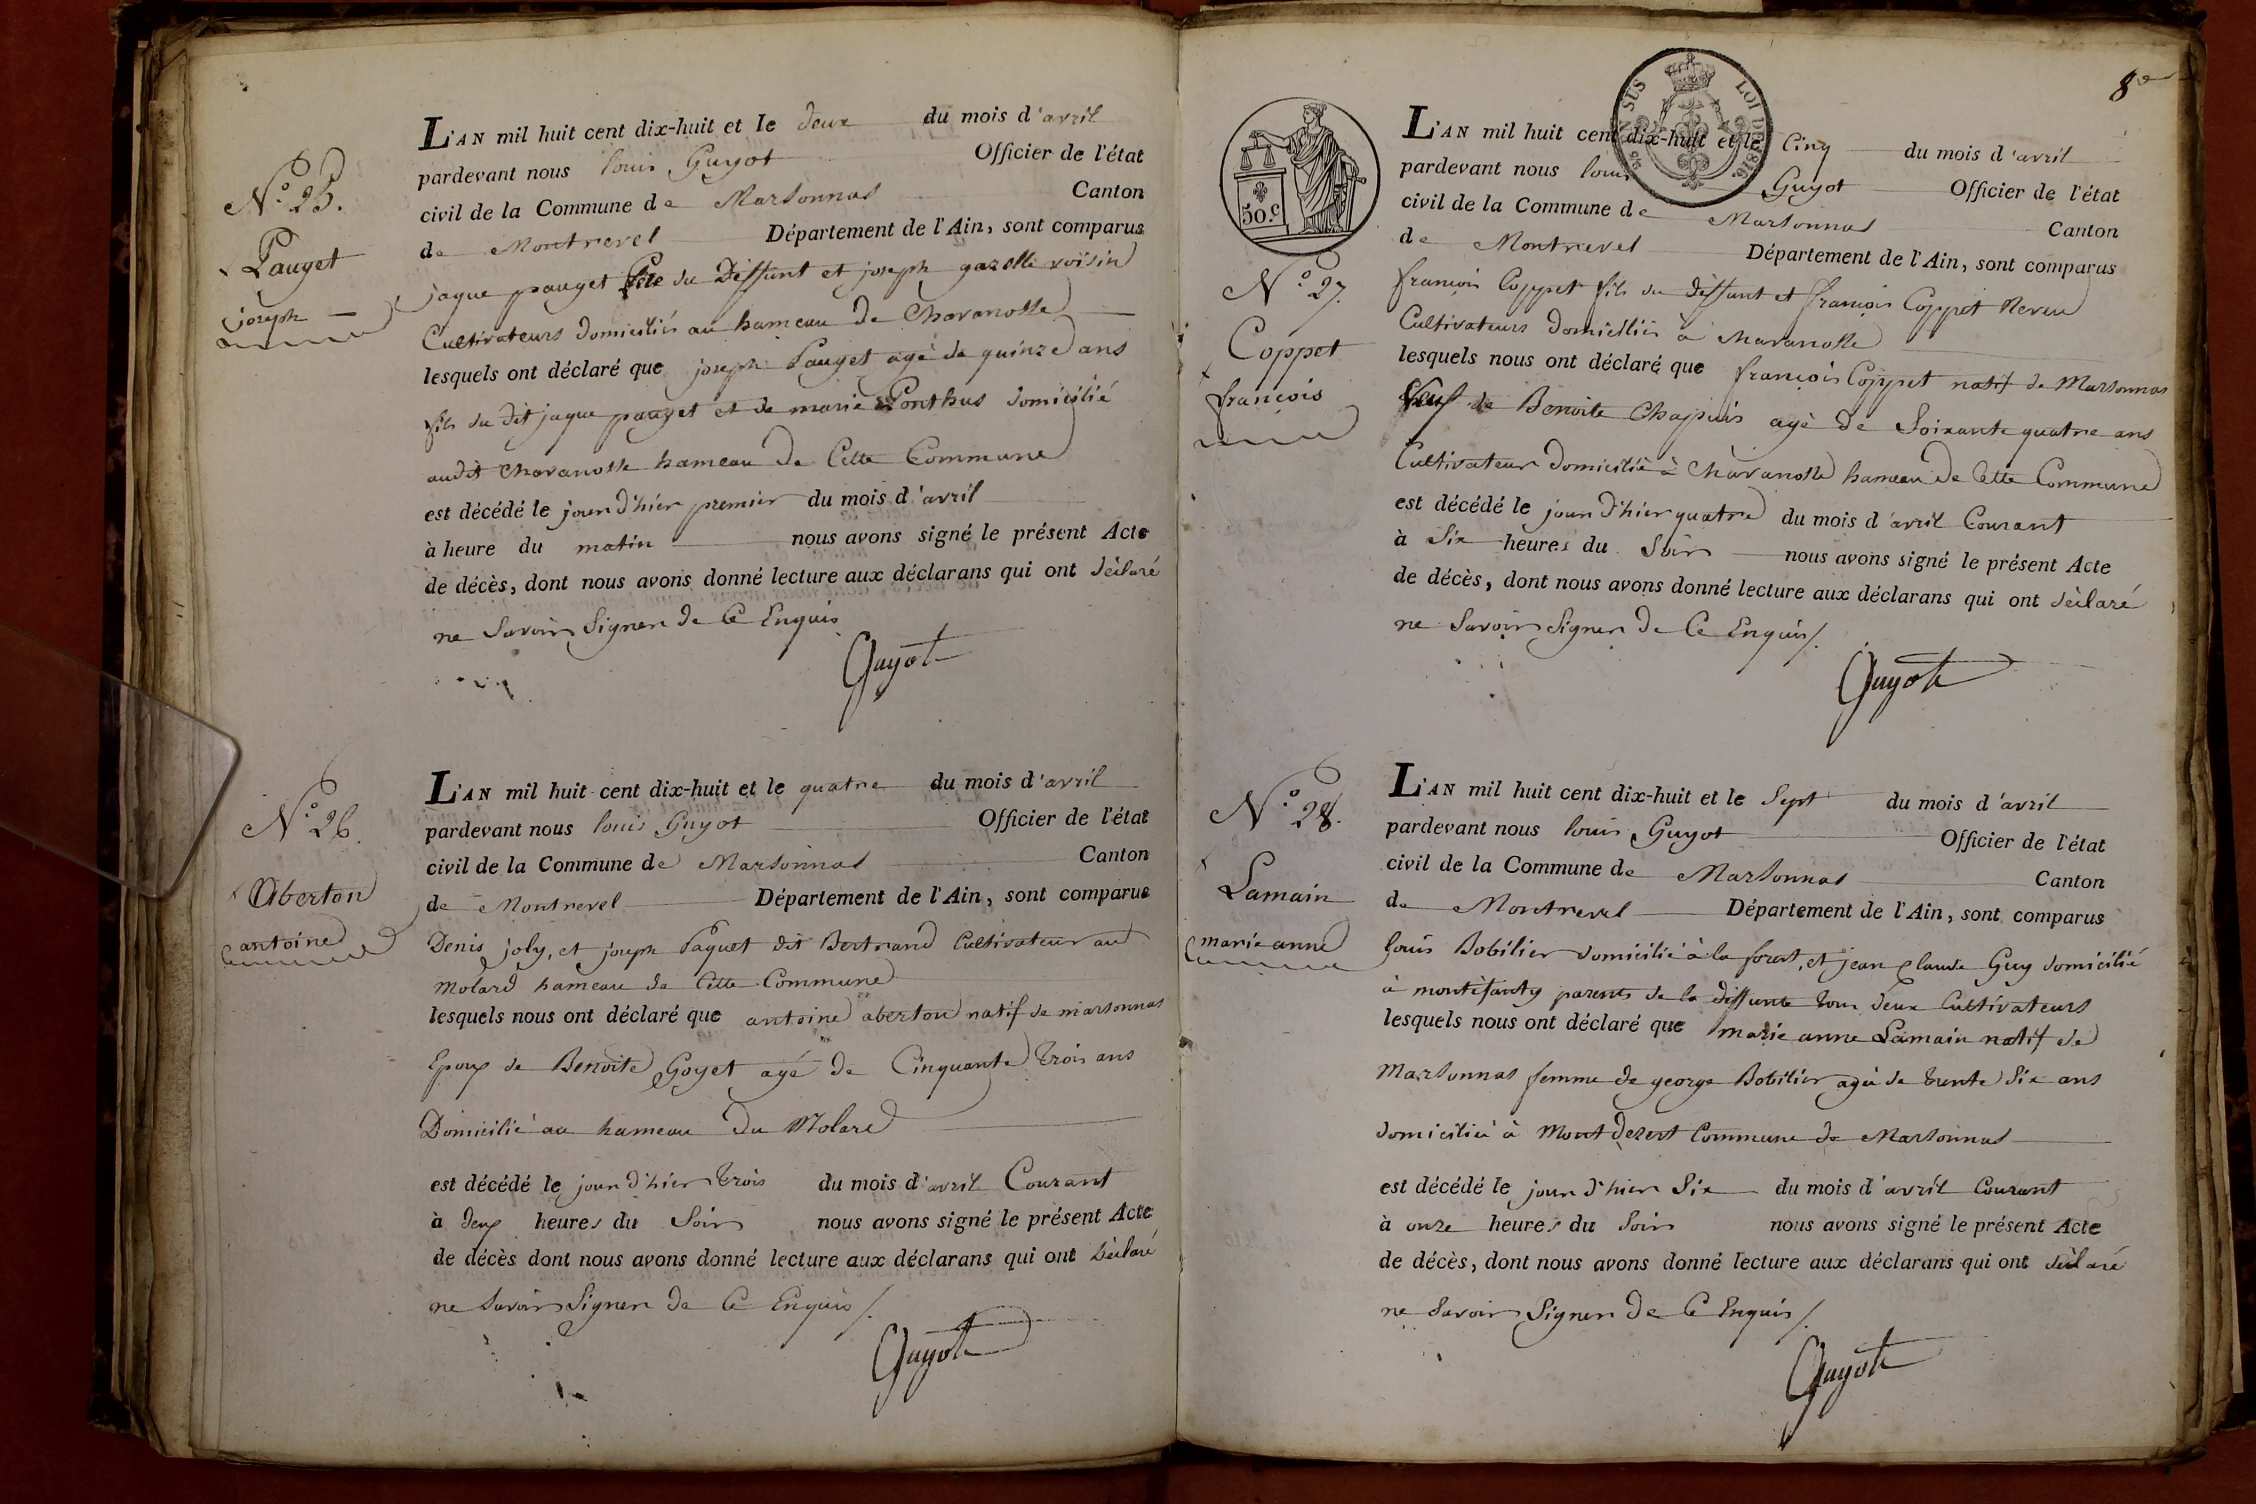 N.° 25.
Pauget
joseph
L'AN mil huit cent dix-huit et le deux du mois d'avril
pardevant nous louis Guyot Officier de l'état
civil de la Commune de Marsonnas Canton
de Montrevel Département de l'Ain, sont comparus
jaque pauget Père du Deffunt et joseph gazelle voisin
Cultivateurs domiciliés au hameau de Chavanosse
lesquels ont déclaré que joseph Pauget agé de quinze ans
fils du dit jaque pauget et de marie Ponthus domicilié
audit Chavanosse hameau de Cette Commune
est décédé le jour d'hier premier du mois d'avril
à heure du matin nous avons signé le présent Acte
de décès, dont nous avons donné lecture aux déclarans qui ont déclaré
ne Savoir Signer de Ce Enquis
Guyot
N.° 26.
Aberton
antoine
L'AN mil huit cent dix-huit et le quatre du mois d'avril
pardevant nous louis Guyot Officier de l'état
civil de la Commune de Marsonnas Canton
de Montrevel Département de l'Ain, sont comparus
Denis joly, et joseph Paquet dit Bertrand Cultivateur au
Molard hameau de Cette Commune
lesquels nous ont déclaré que antoine aberton natif de marsonnas
Epoux de Benoite Goyet agé de Cinquante trois ans
Domicilié au hameau Du Molard
est décédé le jour d'hier trois du mois d'avril Courant
à deux heures du Soir nous avons signé le présent Acte
de décès dont nous avons donné lecture aux déclarans qui ont déclaré
ne Savoir Signer de Ce Enquis /.
Guyot
8e
50.c
LOI DE 1816.
N.° 27.
Coppet
françois
L'AN mil huit cent dix-huit et le Cinq du mois d'avril
pardevant nous louis Guyot Officier de l'état
civil de la Commune de Marsonnas Canton
de Montrevel Département de l'Ain, sont comparus
françois Coppet fils du deffunt et françois Coppet Neveu
Cultivateurs domiciliés à Chavanosse
lesquels nous ont déclaré que françois Coppet natif de Marsonnas
Veuf de Benoite Chapuis agé de Soixante quatre ans
Cultivateur domicilié à Chavanosse hameau de Cette Commune
est décédé le jour d'hier quatre du mois d'avril Courant
à Six heures du Soir nous avons signé le présent Acte
de décès, dont nous avons donné lecture aux déclarans qui ont déclaré
ne Savoir Signer de Ce Enquis /.
Guyot
N.° 28.
Lamain
marie anne
L'AN mil huit cent dix-huit et le Sept du mois d'avril
pardevant nous louis Guyot Officier de l'état
civil de la Commune de Marsonnas Canton
de Montrevel Département de l'Ain, sont comparus
louis Bobilier domicilié à la forest, et jean claude Guy domicilié
à parents de la deffunte tous deux Cultivateurs
lesquels nous ont déclaré que marie anne Lamain natif de
Marsonnas femme de george Bobilier agée de trente Six ans
domiciliée à Mont dezert Commune de Marsonnas
est décédé le jour d'hier Six du mois d'avril Courant
à onze heures du Soir nous avons signé le présent Acte
de décès, dont nous avons donné lecture aux déclarans qui ont déclaré
ne Savoir Signer de Ce Enquis /.
Guyot